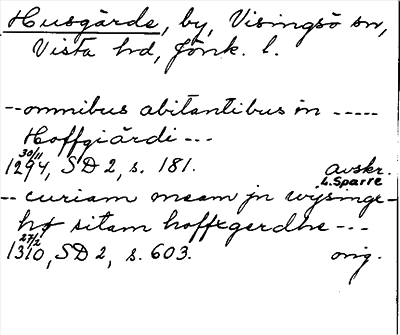 Husgärde, by, Visingsö sn,
Vista hd, Jönk. l.
--omnibus abitantibus in -----
Hoffgiärdi---
30/11
1294, SD 2, s. 181. avskr.
L. Sparre
-- curiam meam jn wysinge-
hø sitam hoffxgerdhe ---
27/2
1310, SD 2, s. 603. orig.